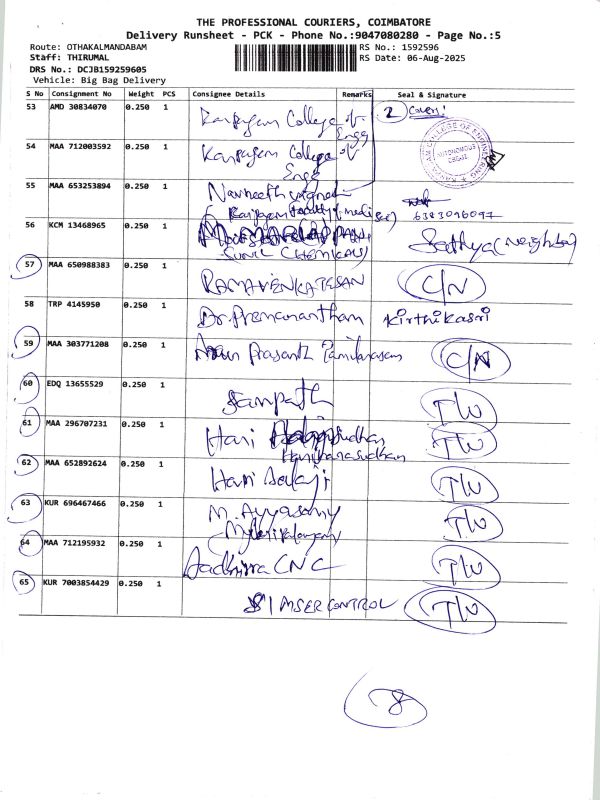 THE PROFESSIONAL COURIERS, COIMBATORE
Delivery Runsheet - PCK - Phone No.:9047080280 - Page No.:5
Route: OTHAKALMANDABAM RS No.: 1592596
Staff: THIRUMAL RS Date: 06-Aug-2025
DRS No.: DCJB159259605
Vehicle: Big Bag Delivery
S No Consignment No Weight PCS Consignee Details Remarks Seal & Signature
53 AMD 30834070 0.250 1 Karpagam College of Engg 2 Covers
54 MAA 712003592 0.250 1 Karpagam College of Engg
KARPAGAM COLLEGE OF ENGINEERING AUTONOMOUS
55 MAA 653253894 0.250 1 Navneeth
Karpagam faculty 6383096097
56 KCM 13468965 0.250 1 Sathya (Neighbor)
SUNIL CHEMICALS
57 MAA 650988383 0.250 1 RAMAVENKATESAN C/N
58 TRP 4145950 0.250 1 Dr. Premanantham Kirthikasri
59 MAA 303771208 0.250 1 Arun Prasanth C/N
60 EDQ 13655529 0.250 1 Sampath T/W
61 MAA 296707231 0.250 1 Hari T/W
Hariharasudhan
62 MAA 652892624 0.250 1 Hari Balaji T/W
63 KUR 696467466 0.250 1 M. Ayyasamy T/W
64 MAA 712195932 0.250 1 Aadhira CNC T/W
65 KUR 7003854429 0.250 1 MSER CONTROL T/W
8